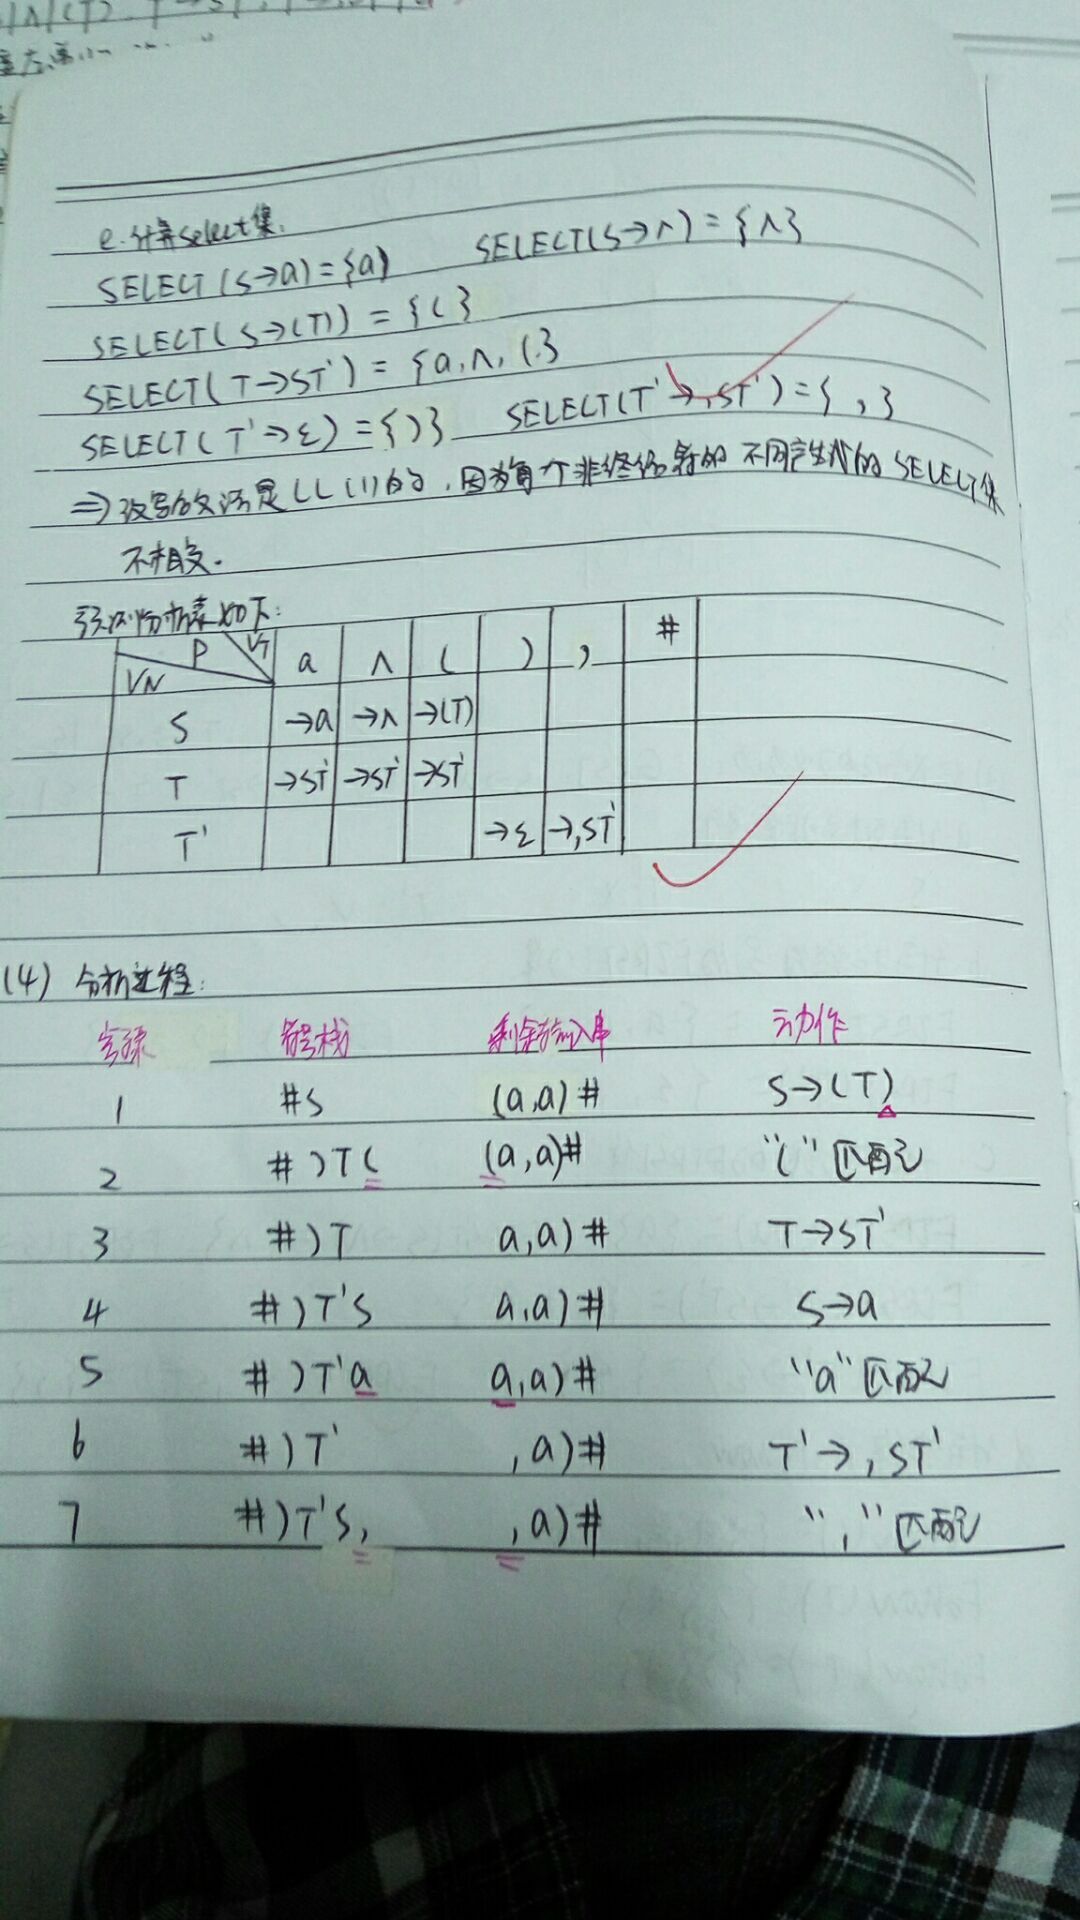 e.计算select集.
SELECT(S→a)={a} SELECT(S→∧)={∧}
SELECT(S→(T))={(}
SELECT(T→ST')={a,∧,(.}
SELECT(T'→ε)={)} SELECT(T'→,ST')={,}
⇒改写的文法是LL(1)的,因为每个非终结符的不同产生式的SELECT集
不相交.
预测分析表如下:
P VT VN a ∧ ( ) , #
S →a →∧ →(T)
T →ST' →ST' →ST'
T' →ε →,ST'
(4) 分析过程:
步骤 符号栈 剩余输入串 动作
1 #S (a,a)# S→(T)
2 #)T( (a,a)# "("匹配
3 #)T a,a)# T→ST'
4 #)T'S a,a)# S→a
5 #)T'a a,a)# "a"匹配
6 #)T' ,a)# T'→,ST'
7 #)T'S, ,a)# ","匹配